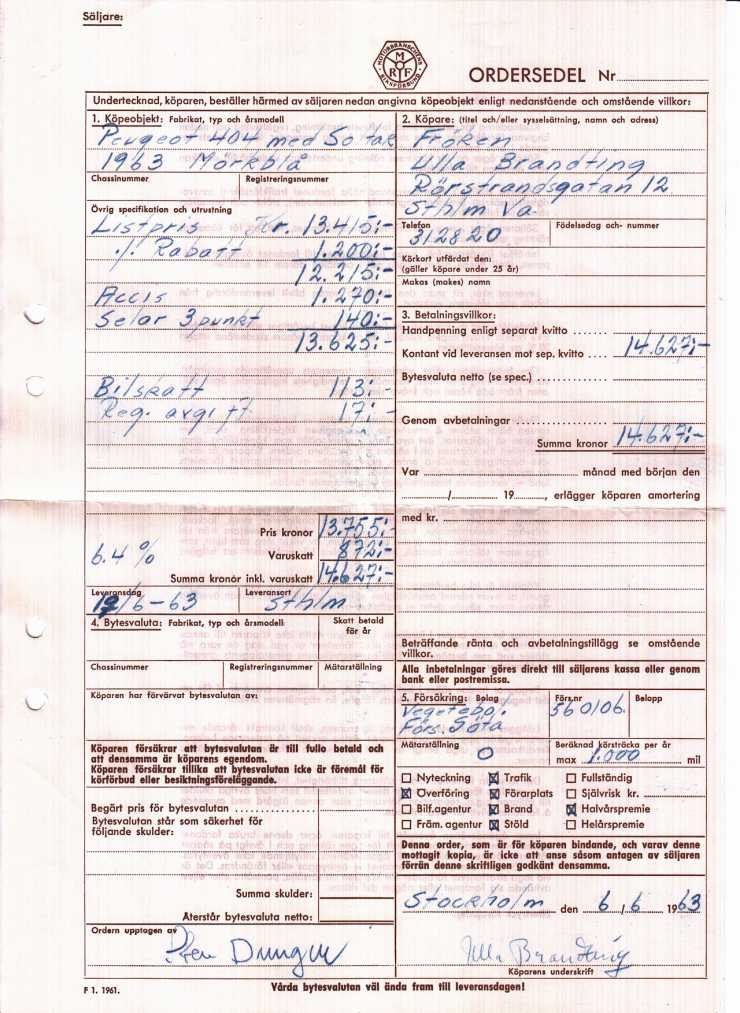 Säljare:
MOTORBRANSCHENS RIKSFÖRBUND
M
R F
ORDERSEDEL Nr
Undertecknad, köparen, beställer härmed av säljaren nedan angivna köpeobjekt enligt nedanstående och omstående villkor:
1. Köpeobjekt: Fabrikat, typ och årsmodell
Peugeot 404 med Soltak
1963 Mörkblå
Chassinummer Registreringsnummer
Övrig specifikation och utrustning
Listpris Kr. 13.415:-
./. Rabatt 1.200:-
12.215:-
Accis 1.270:-
Selar 3punkt 140:-
13.625:-
Bilskatt 113:-
Reg. avgift 17:-
Pris kronor 13.755:-
6.4 % Varuskatt 872:-
Summa kronor inkl. varuskatt 14.627:-
Leveransdag Leveransort
/6-63 Sthlm
4. Bytesvaluta: Fabrikat, typ och årsmodell Skatt betald för år
Chassinummer Registreringsnummer Mätarställning
Köparen har förvärvat bytesvalutan av:
Köparen försäkrar att bytesvalutan är till fullo betald och
att densamma är köparens egendom.
Köparen försäkrar tillika att bytesvalutan icke är föremål för
körförbud eller besiktningsföreläggande.
Begärt pris för bytesvalutan
Bytesvalutan står som säkerhet för
följande skulder:
Summa skulder:
Återstår bytesvaluta netto:
Ordern upptagen av
2. Köpare: (titel och/eller sysselsättning, namn och adress)
Fröken
Ulla Brandting
Rörstrandsgatan 12
Sthlm Va.
Telefon Födelsedag och- nummer
312820
Körkort utfärdat den:
(gäller köpare under 25 år)
Makas (makes) namn
3. Betalningsvillkor:
Handpenning enligt separat kvitto
Kontant vid leveransen mot sep. kvitto 14.627:-
Bytesvaluta netto (se spec.)
Genom avbetalningar
Summa kronor 14.627:-
Var månad med början den
/ 19 , erlägger köparen amortering
med kr.
Beträffande ränta och avbetalningstillägg se omstående
villkor.
Alla inbetalningar göres direkt till säljarens kassa eller genom
bank eller postremissa.
5. Försäkring: Bolag Förs.nr Belopp
560106.
Förs. Göta
Mätarställning Beräknad körsträcka per år
0 max 1.000 mil
Nyteckning Trafik Fullständig
Överföring Förarplats Självrisk kr.
Bilf.agentur Brand Halvårspremie
Främ. agentur Stöld Helårspremie
Denna order, som är för köparen bindande, och varav denne
mottagit kopia, är icke att anse såsom antagen av säljaren
förrän denne skriftligen godkänt densamma.
Stockholm den 6/6 1963
Ulla Brandting
Köparens underskrift
F 1. 1961.
Vårda bytesvalutan väl ända fram till leveransdagen!